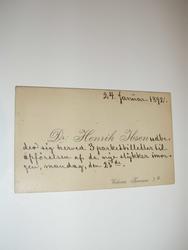 24. januar 1892.
Dr. Henrik Ibsen udbe-
der sig herved 3 parketbilletter til
opførelsen af de nye stykker mor-
gen, mandag, den 25de.
Victoria Terrasse